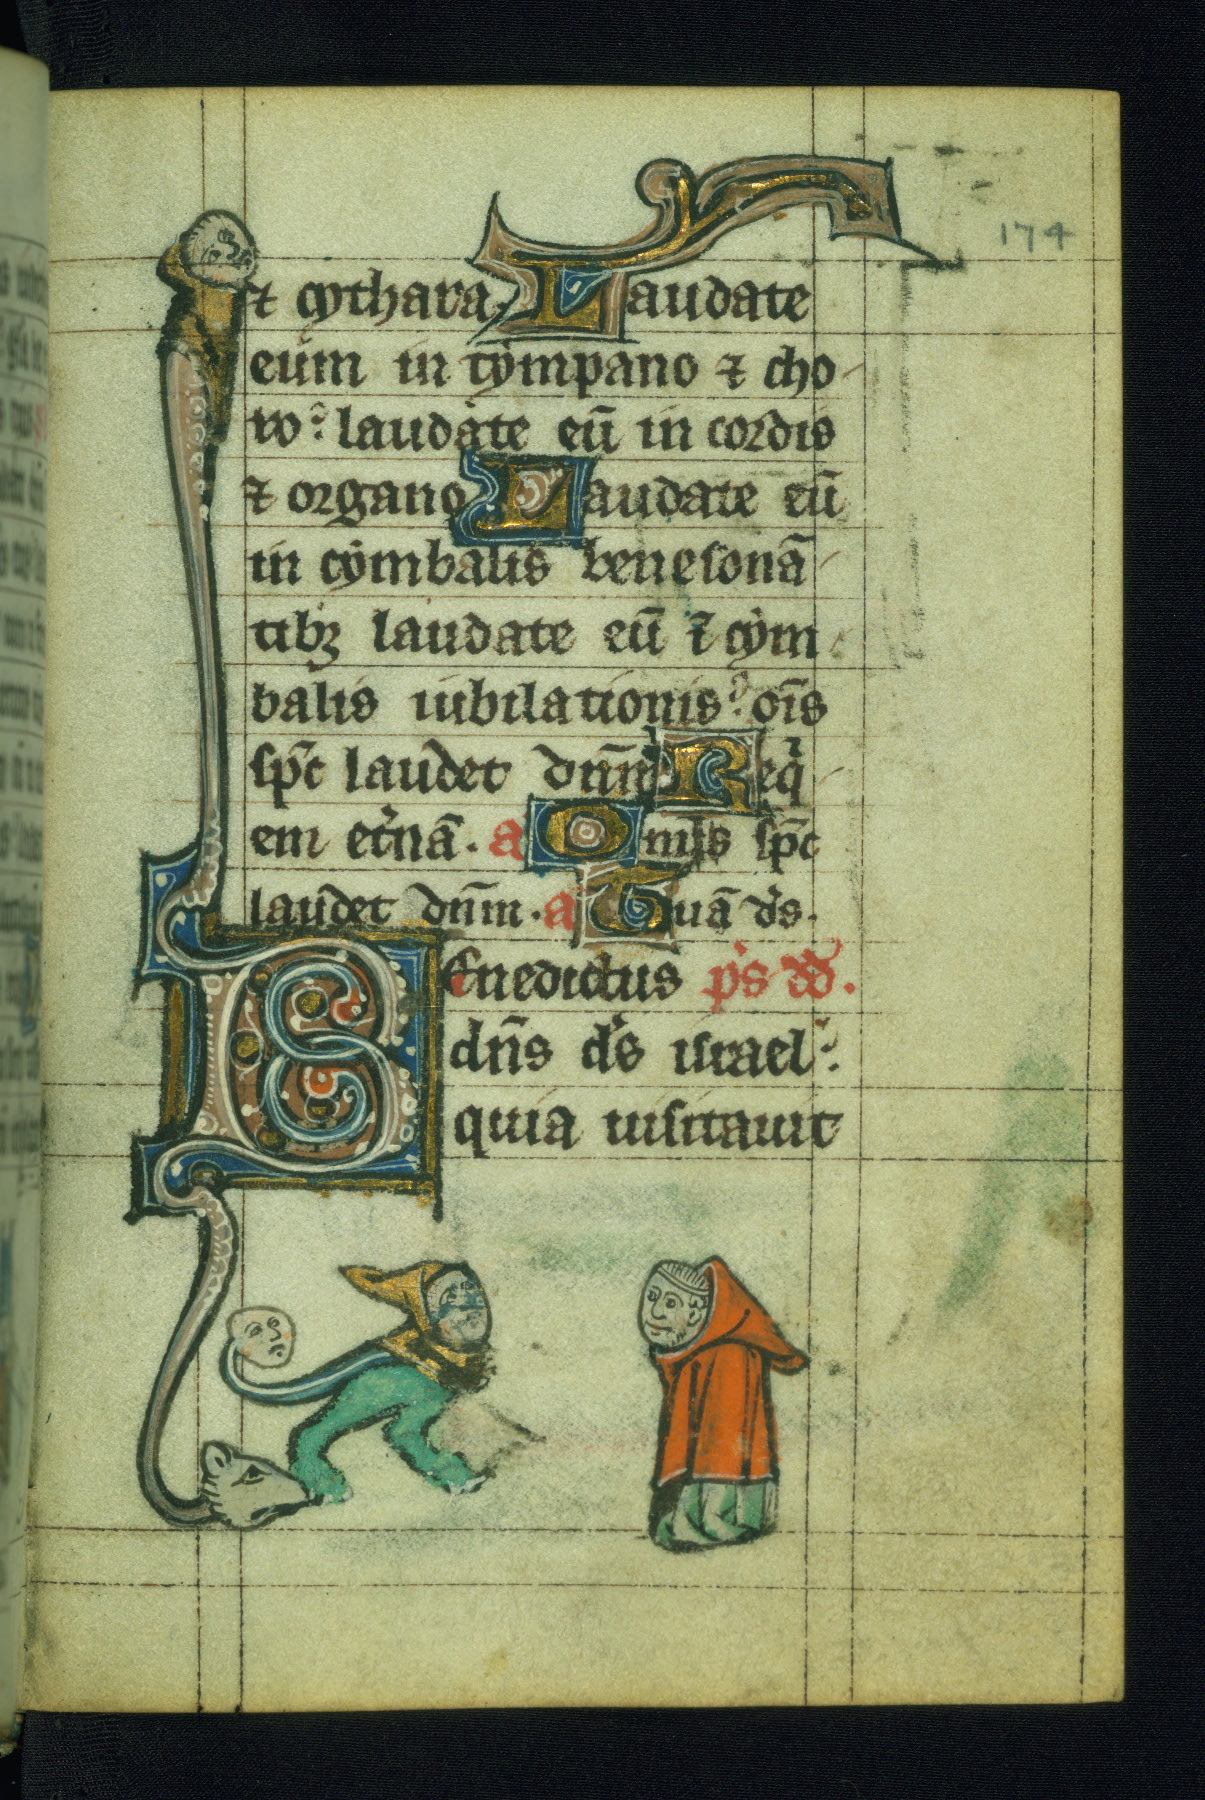 174
⁊ cythara Laudate
eum in tympano ⁊ cho
ro: laudate eū in cordis
⁊ organo Laudate eū
in cymbalis benesonā
tibꝫ laudate eū ī cym
balis iubilationis: oīs
sp̄c laudet dn̄m Req̇
em et̉nā. a Omis sp̄c
laudet dn̄m. a Tuā d̉s.
Benedictus p̉s
dn̄s d̉s israel:
quia uisitauit